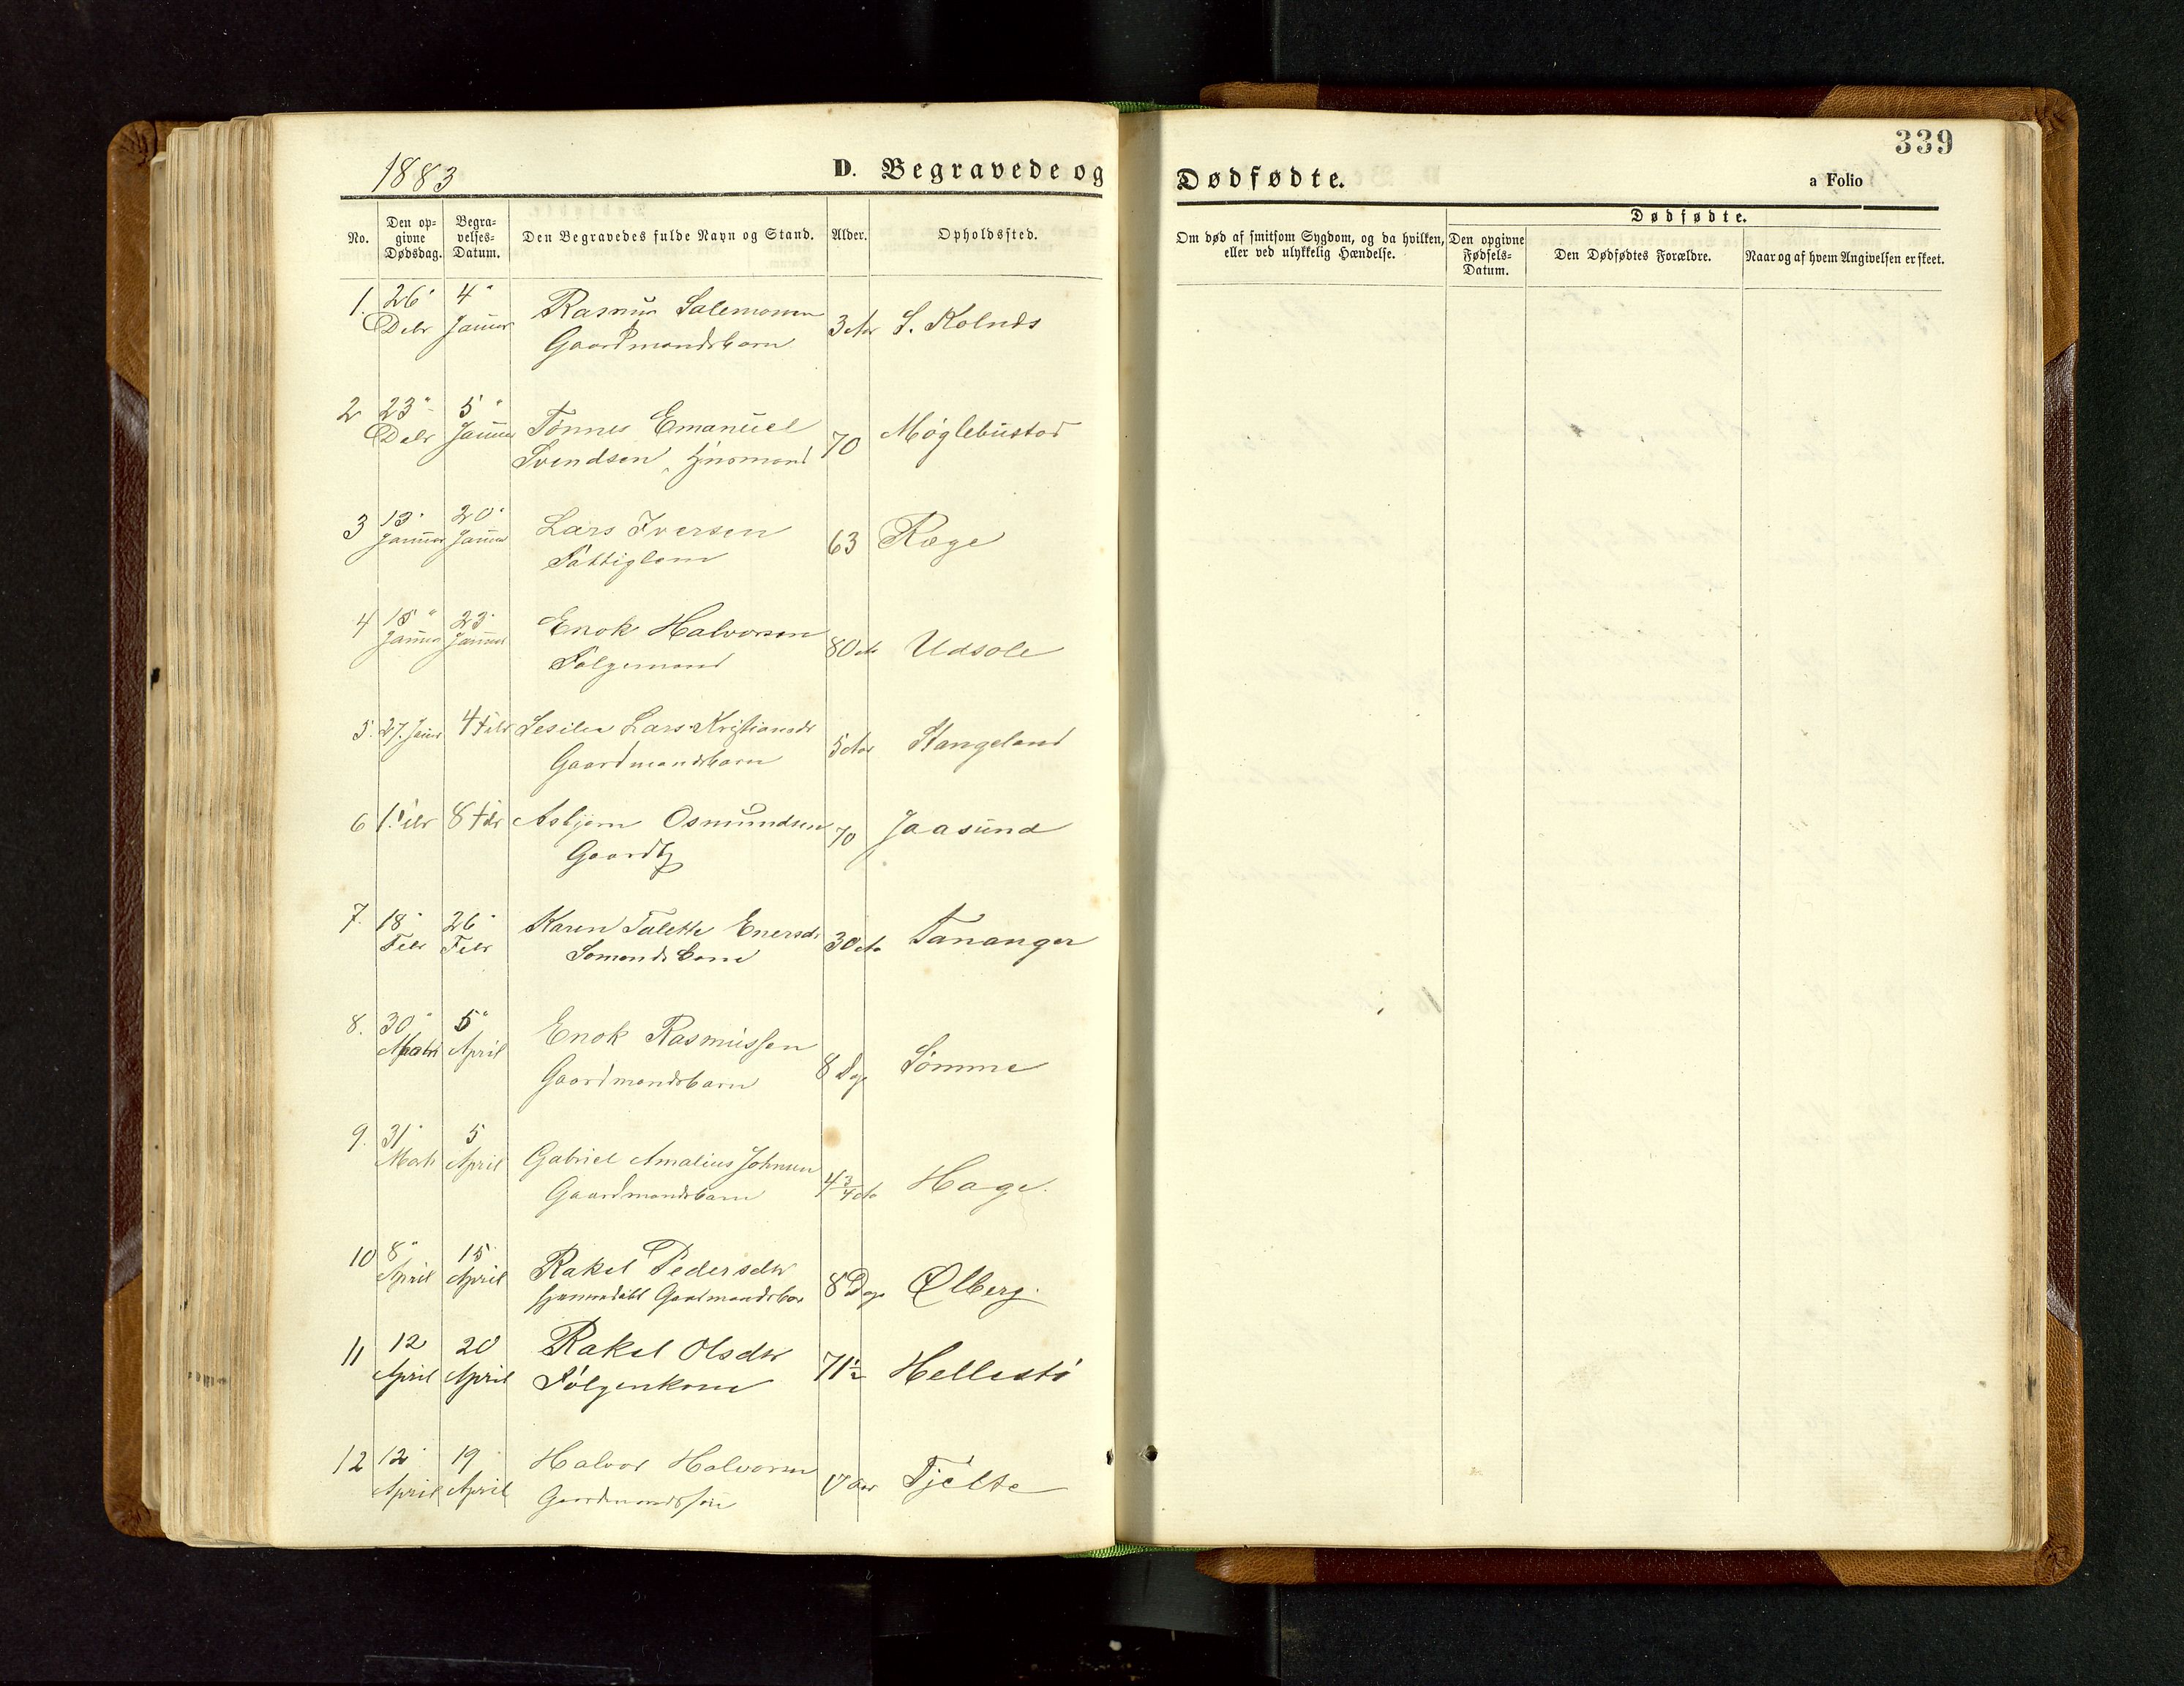 339
1883
D. Begravede og Dødfødte.
a Folio
No.
Den op-
givne
Dødsdag.
Begra-
velses-
Datum.
Den Begravedes fulde Navn og Stand.
Alder.
Opholdssted.
Om død af smitsom Sygdom, og da hvilken,
eller ved ulykkelig Hændelse.
Dødfødte.
Den opgivne
Fødsels-
Datum.
Den Dødfødtes Forældre.
Naar og af hvem Angivelsen er skeet.
1. 26 4 Rasmus
Debr Januar Gaardmandsbarn 3 Aar S. Kolnes
2 23 5 Tønnes Emanuel Møglebustad
Debr Januar Svendsen, Huusmand 70
3 13 20 Lars Iversen 63 Ræge
Januar Januar Fattiglem
4 15 23 Enok Halvorsen
Januar Januar Følgemand 80 Udsole
5. 27. Januar 4 Febr Lars Kristiansdr
Gaardmandsbarn 5 Aar Stangeland
6 1. Febr 8 Febr Asbjørn Osmundsen 70 Jaasund
7. 18 26 Karen Talette Enersdr Tananger
Febr Febr 30
8. 30 5 Enok Rasmussen
April Gaardmandsbarn 8 Dge Sømme
9. 31 5 Gabriel Amalius Johnsen
April Gaardmandsbarn 4 3/4 Haga
10 8 15 Rakel Pedersdtr
April April hjemmedøbt Gaardmandsbar 8 Dge Ølberg.
11 12 20 Rakel Olsdtr 71½ Hellestø
April April Følgenkone
12 12 19 Halvor Halvorsen
April April Gaardmandssøn Aar Tjelte